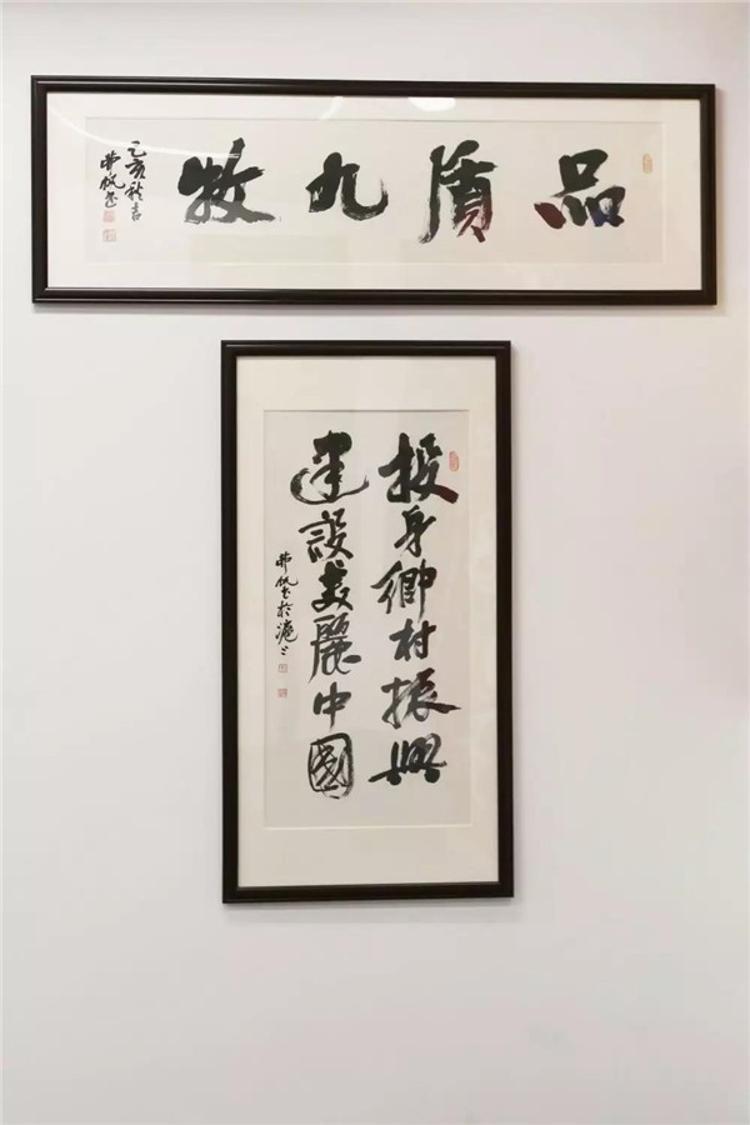 品质九牧
乙亥秋吉
书
投身乡村振興
建設美麗中國
书於滬上